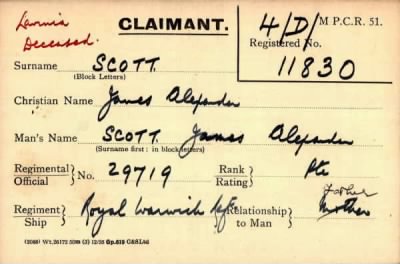 CLAIMANT.
Deceased.
4/D/ M P.C.R. 51.
Registered No.
11830
Surname SCOTT.
(Block Letters)
Christian Name James Alexander
Man's Name SCOTT James Alexander
(Surname first: in block letters)
Regimental Official No. 29719 Rank Rating Pte
Father
Regiment Ship Royal Warwick Relationship to Man Mother
(2088) Wt.26172 50M (3) 12/35 Gp.619 C&SLtd